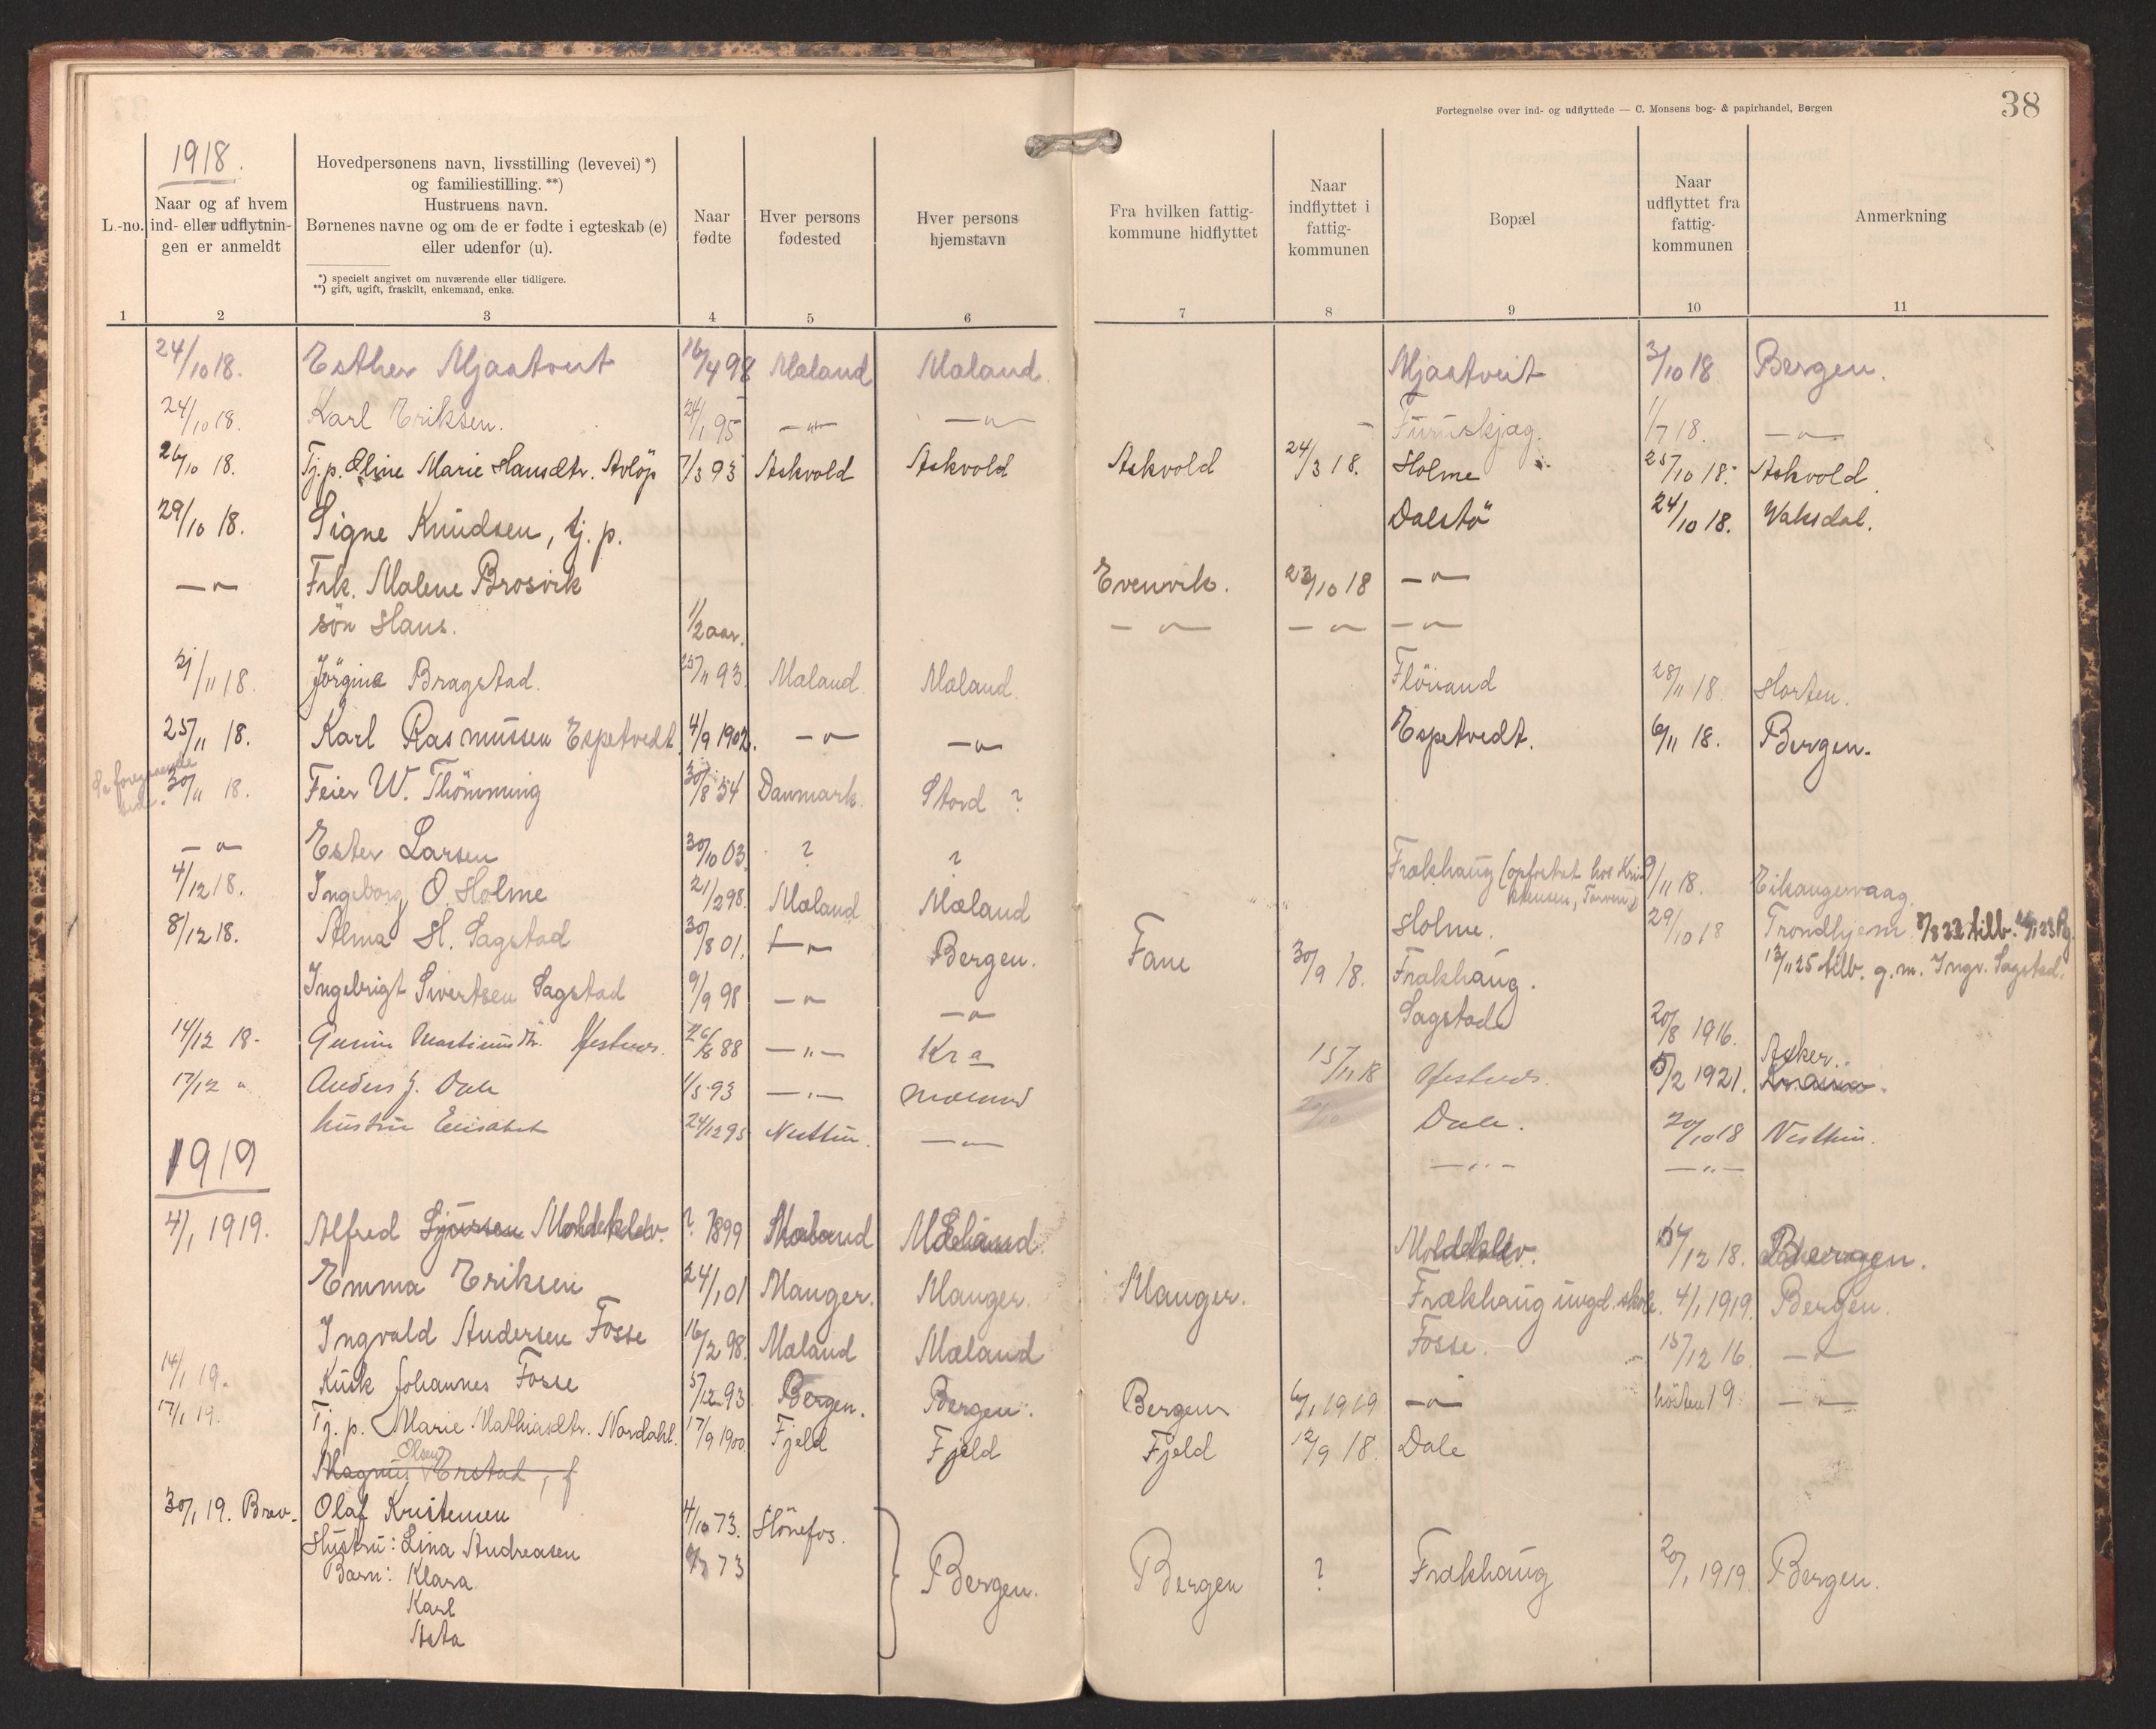 Fortegnelse over ind- og udflyttede — C. Monsens bog- & papirhandel, Bergen
38
1918.
L.-no.
Naar og af hvem
ind- eller udflytnin-
gen er anmeldt
Hovedpersonens navn, livsstilling (levevei) *)
og familiestilling. **)
Hustruens navn.
Børnenes navne og om de er fødte i egteskab (e)
eller udenfor (u).
*) specielt angivet om nuværende eller tidligere.
**) gift, ugift, fraskilt, enkemand, enke.
Naar
fødte
Hver persons
fødested
Hver persons
hjemstavn
Fra hvilken fattig-
kommune hidflyttet
Naar
indflyttet i
fattig-
kommunen
Bopæl
Naar
udflyttet fra
fattig-
kommunen
Anmerkning
1 2 3 4 5 6 7 8 9 10 11
24/10 18. Esther Mjaatveit 16/4 98 Mæland Mæland. Mjaatveit 3/10 18 Bergen.
24/10 18. Karl Eriksen. 24/1 95 —"— —"— 1/7 18. —"—
26/10 18. Tj.p. Oline Marie Hansdtr. Avløp 7/3 93 Askvold Askvold Askvold 24/3 18. Holme 25/10 18. Askvold.
29/10 18. Signe Knudsen, tj. p. Dalstö 24/10 18. Waksdal.
—"— Frk. Malene Brosvik Evenvik. 23/10 18 —"—
søn Hans. 1/2 aar. —"— —"— —"—
/11 18. Jörgine Bragstad. 25/11 93. Mæland Mæland. Flövand 28/11 18 Horten.
25/11 18. Karl Rasmussen Espetvedt 4/9 1902. —"— —"— Espetvedt. 6/11 18. Bergen.
Se foregaaende
side. 30/11 18. Feier W. Thömming 30/8 54 Danmark Stord ?
—"— Ester Larsen 30/10 03. ? ? Frækhaug (opfostret hos Kris
tensen, ) 9/11 18. Eikangervaag.
4/12 18. Ingeborg O. Holme 21/2 98. Mæland Mæland Holme. 29/10 18 Trondhjem
8/12 18. Alma H. Sagstad 30/8 01. —"— Bergen. Fane 30/9 18. Frækhaug. 13/11 25 tilb. g.m. Ingv. Sagstad.
Ingebrigt Sivertsen Sagstad 9/9 98 —"— —"— Sagstad 20/8 1916. Asker.
14/12 18. 26/8 88 —"— Kra 15/11 18 5/2 1921.
17/12 " Anders J. Dale 1/5 93 —"— Mæland Dale. 20/10 18 Nesttun.
hustru Elisabet 24/12 95 Nesttun. —"— —"— —"—
1919
4/1 1919. Alfred Moldeklev. ? 1899 Mæland Mæland. Moldeklev. /12 18. Bergen.
Emma Eriksen 24/1 01 Manger. Manger. Manger. Frækhaug ungd. skole. 4/1 1919. Bergen.
Ingvald Andersen Fosse 16/2 98. Mæland Mæland Fosse. 15/12 16. —"—
14/1 19. Kusk Johannes Fosse 5/12 93 Bergen. Bergen. Bergen 6/1 1919 —"— hösten 19 —"—
17/1 19. Tj. p. Marie Mathiasdtr. Nordahl. 17/9 1900. Fjeld Fjeld Fjeld 12/9 18. Dale
Olsen
Magnus Erstad, f
30/1 19. Brev. Olaf Kristensen 4/10 73. Hönefos.
Hustru: Lina Andreasen 73
Barn: Klara Bergen. Bergen ? Frækhaug 20/1 1919 Bergen.
Karl
Asta